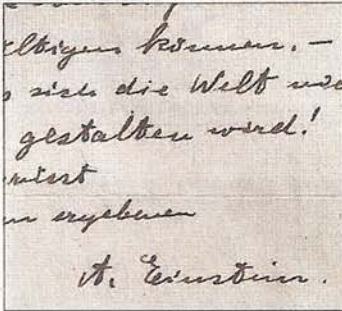 ältigen können. –
sich die Welt
gestalten wird!

ergebenen
A. Einstein.